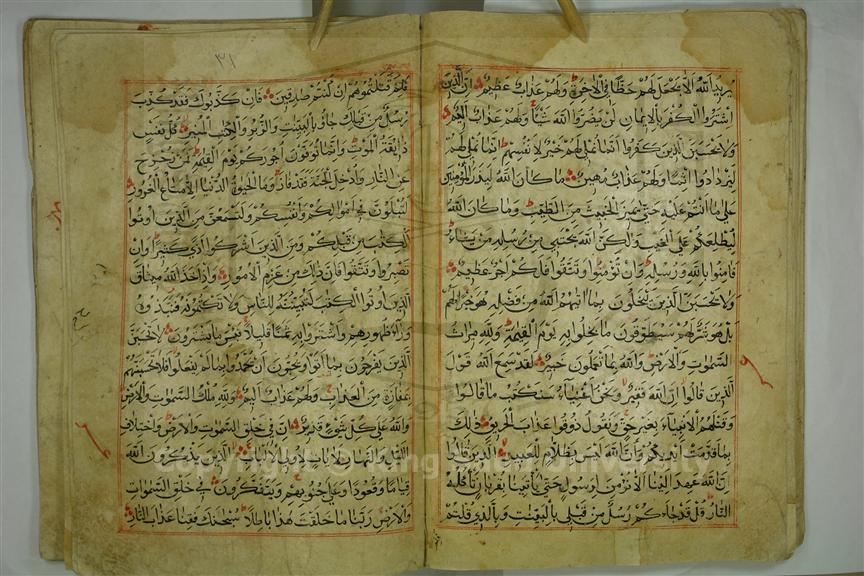 يريد الله الا يجعل لهم حظا في الاخرة ولهم عذاب عظيم ان الذين
اشتروا الكفر بالايمان لن يضروا الله شيئا ولهم عذاب اليم
ولا يحسبن الذين كفروا انما نملي لهم خير لانفسهم انما نملي لهم
ليزدادوا اثما ولهم عذاب مهين ما كان الله ليذر المؤمنين
على ما انتم عليه حتى يميز الخبيث من الطيب وما كان الله
ليطلعكم على الغيب ولكن الله يجتبي من رسله من يشاء
فامنوا بالله ورسله وان تؤمنوا وتتقوا فلكم اجر عظيم
ولا يحسبن الذين يبخلون بما اتيهم الله من فضله هو خيرا لهم
بل هو شر لهم سيطوقون ما بخلوا به يوم القيمة ولله ميراث
السموات والارض والله بما تعملون خبير لقد سمع الله قول
الذين قالوا ان الله فقير ونحن اغنياء سنكتب ما قالوا
وقتلهم الانبياء بغير حق ونقول ذوقوا عذاب الحريق ذلك
بما قدمت ايديكم وان الله ليس بظلام للعبيد الذين قالوا
ان الله عهد الينا الا نؤمن لرسول حتى ياتينا بقربان تاكله
النار قل قد جاءكم رسل من قبلي بالبينت وبالذي قلتم
٣١
فلم قتلتموهم ان كنتم صدقين فان كذبوك فقد كذب
رسل من قبلك جاؤ بالبينت والزبر والكتب المنير كل نفس
ذائقة الموت وانما توفون اجوركم يوم القيمة فمن زحزح
عن النار وادخل الجنة فقد فاز وما الحيوة الدنيا الا متاع الغرور
لتبلون في اموالكم وانفسكم ولتسمعن من الذين اوتوا
الكتب من قبلكم ومن الذين اشركوا اذى كثيرا وان
تصبروا وتتقوا فان ذلك من عزم الامور واذ اخذ الله ميثاق
الذين اوتوا الكتب لتبيننه للناس ولا تكتمونه فنبذوه
وراء ظهورهم واشتروا به ثمنا قليلا فبئس ما يشترون لا تحسبن
الذين يفرحون بما اتوا ويحبون ان يحمدوا بما لم يفعلوا فلا تحسبنهم
بمفازة من العذاب ولهم عذاب اليم ولله ملك السموات والارض
والله على كل شيء قدير ان في خلق السموات والارض واختلاف
الليل والنهار لايات لاولي الالباب الذين يذكرون الله
قياما وقعودا وعلى جنوبهم ويتفكرون في خلق السموات
والارض ربنا ما خلقت هذا باطلا سبحنك فقنا عذاب النار